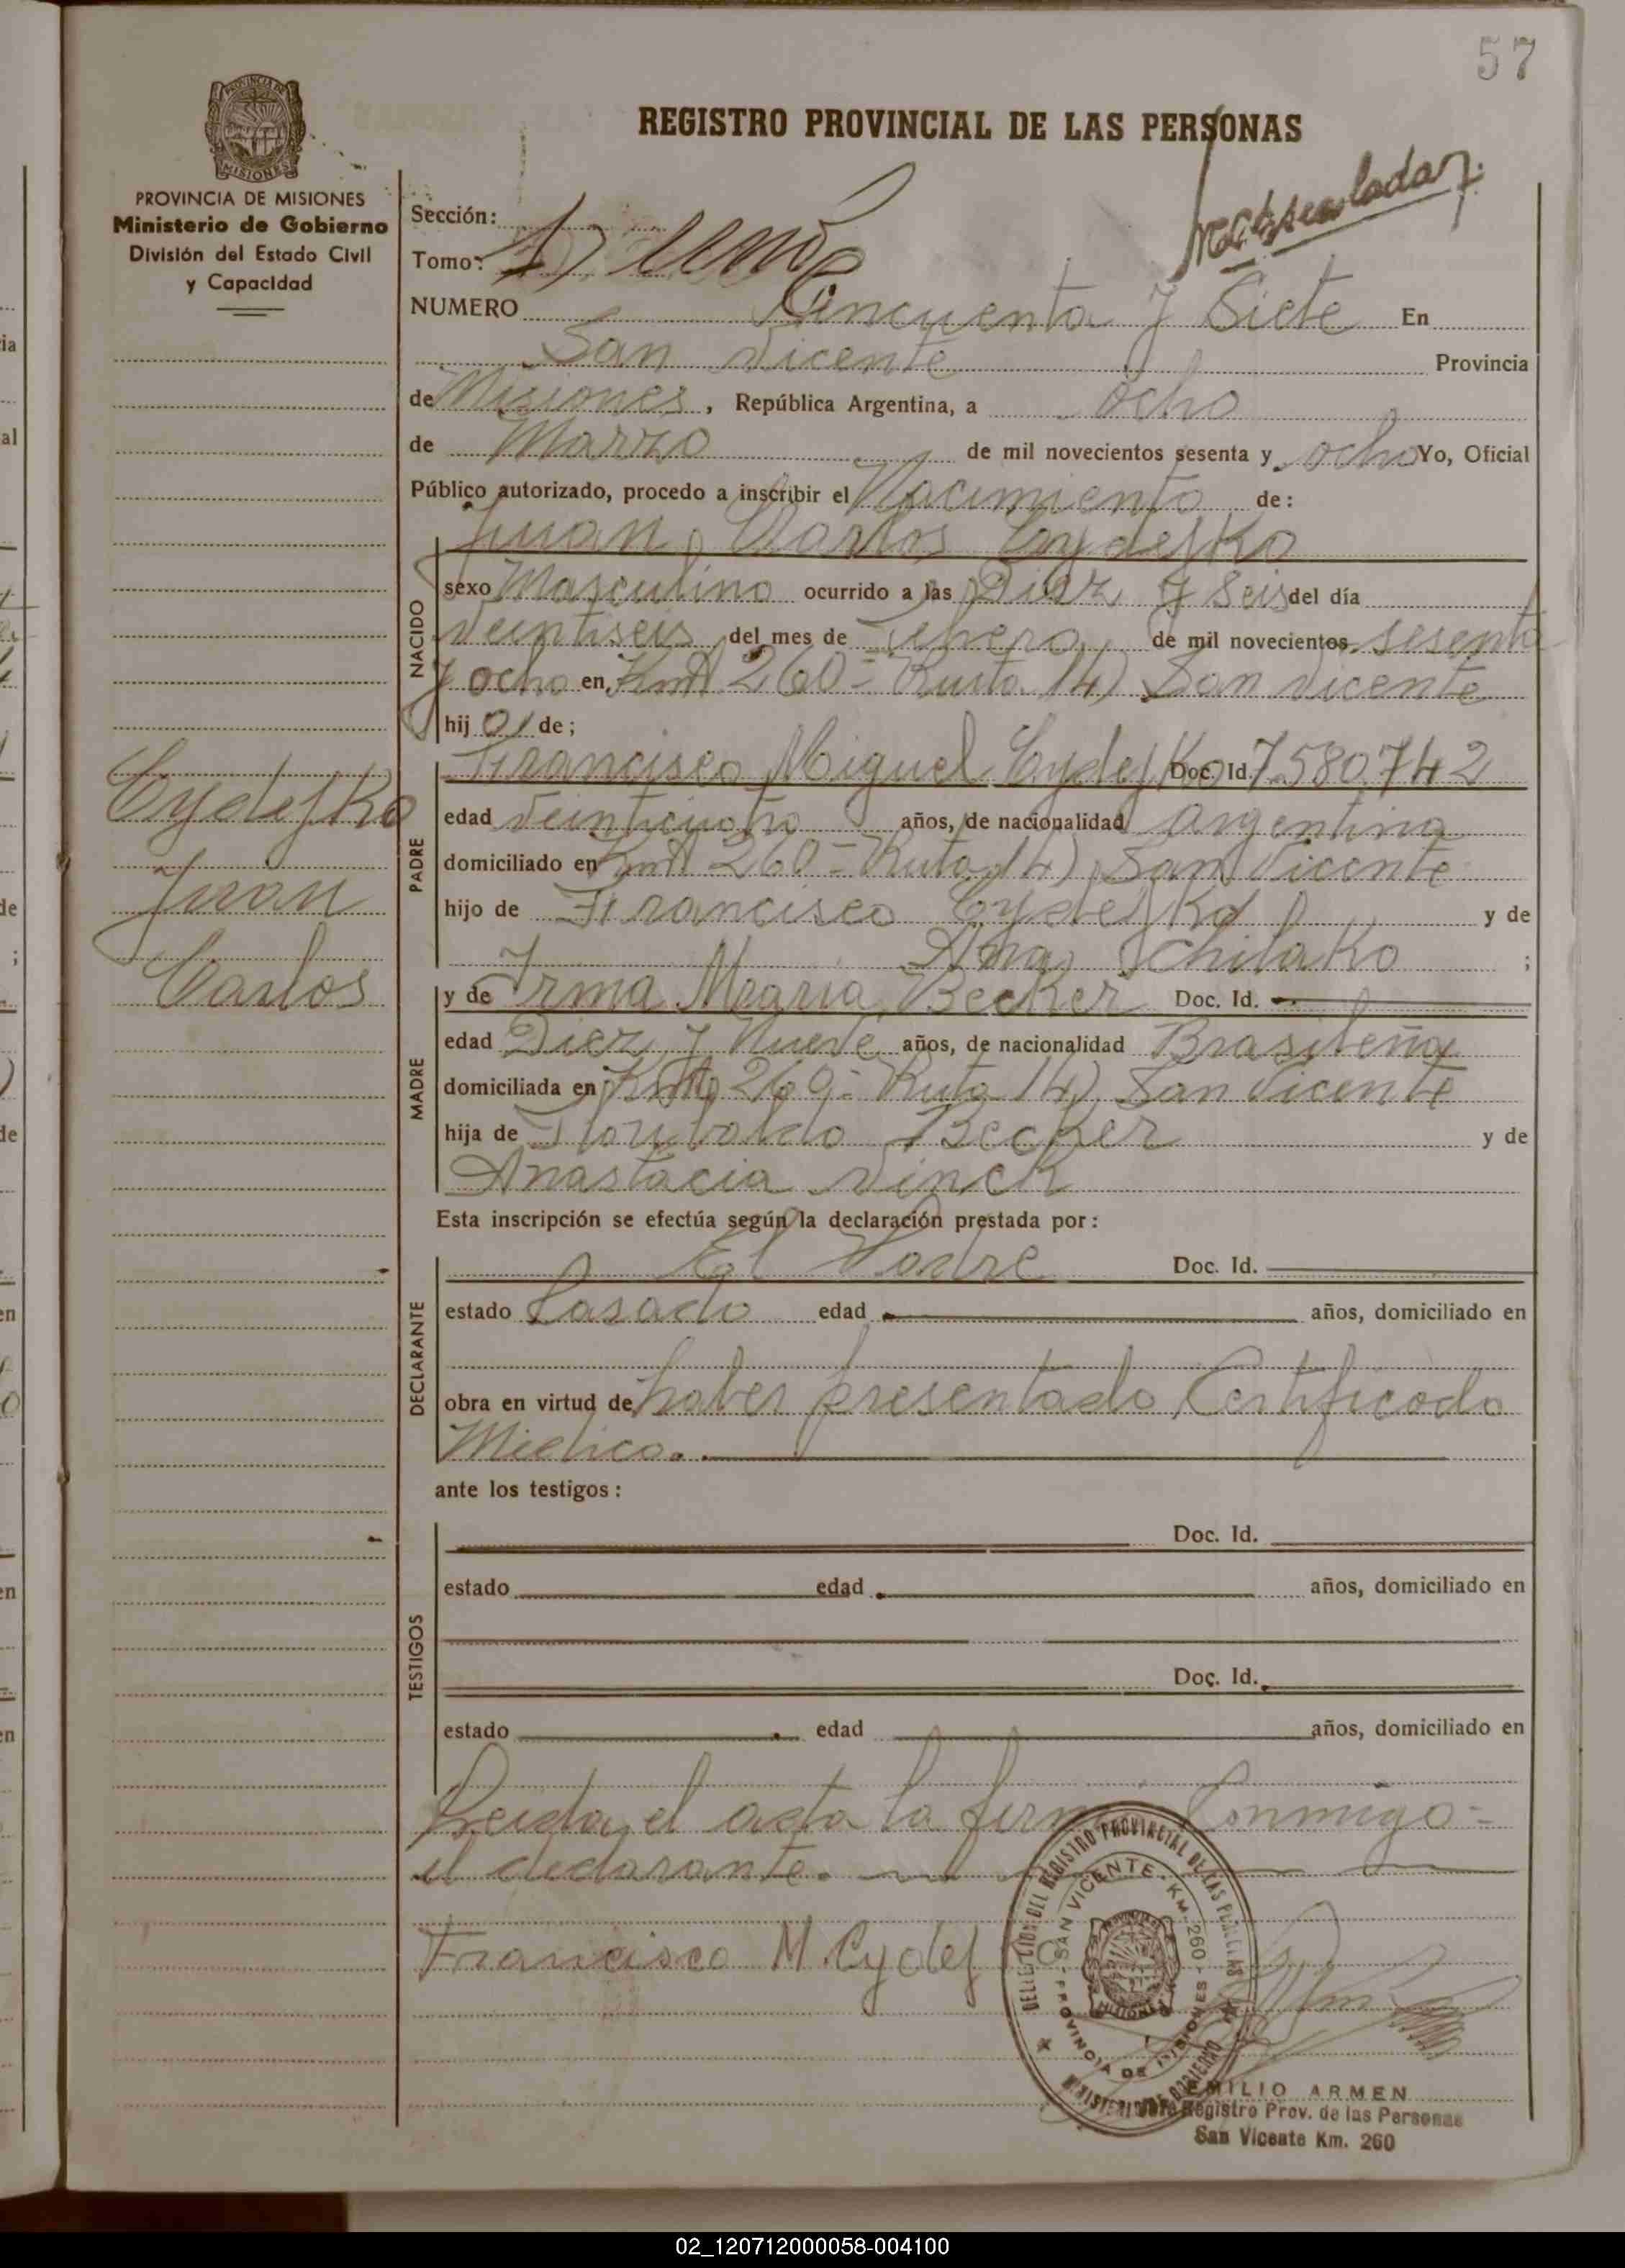 57
REGISTRO PROVINCIAL DE LAS PERSONAS
PROVINCIA DE MISIONES
Ministerio de Gobierno
División del Estado Civil
y Capacidad
Sección:
Tomo: 1) uno
NUMERO Cincuenta y Siete En
San Vicente Provincia
de Misiones, República Argentina, a ocho
de Marzo de mil novecientos sesenta y ocho Yo, Oficial
Público autorizado, procedo a inscribir el Nacimiento de:
Juan Carlos Cydejko
NACIDO
sexo Masculino ocurrido a las Diez y Seis del día
veintiseis del mes de Febero de mil novecientos sesenta
y ocho en Km 260 = Ruta 14) San Vicente
hijo de;
Cydejko
Juan
Carlos
PADRE
Francisco Miguel Cydejko Doc. Id. 7.580.742
edad veinticuatro años, de nacionalidad argentina
domiciliado en Km 260 = Ruta 14) San Vicente
hijo de Francisco Cydejko y de
Ana Schilako ;
MADRE
y de Irma Maria Becker Doc. Id.
edad Diez y Nueve años, de nacionalidad Brasileña
domiciliada en Km 260 = Ruta 14) San Vicente
hija de Becker y de
Anastacia Vinck
Esta inscripción se efectúa según la declaración prestada por:
DECLARANTE
El Padre Doc. Id.
estado Casado edad años, domiciliado en
obra en virtud de haber presentado Certificado
Medico.
ante los testigos:
TESTIGOS
Doc. Id.
estado edad años, domiciliado en
Doc. Id.
estado edad años, domiciliado en
Leida el acta la firma Conmigo =
el declarante.
Francisco M. Cydejko
DELEGACION DEL REGISTRO PROVINCIAL DE LAS PERSONAS
SAN VICENTE - KM. 260 -
PROVINCIA DE MISIONES
MINISTERIO DE GOBIERNO
EMILIO ARMEN
Jefe Registro Prov. de las Personas
San Vicente Km. 260
02_120712000058-004100